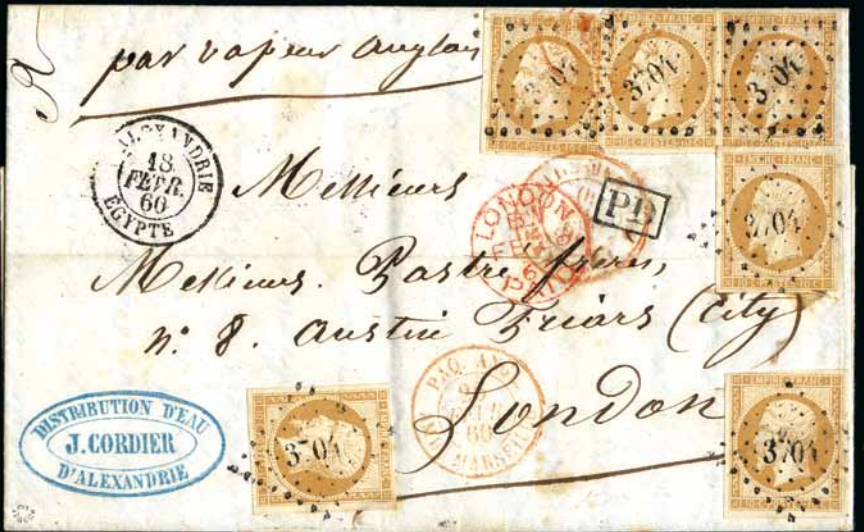 par vapeur anglais
3704 3704 3704
ALEXANDRIE
18
FEVR.
60
EGYPTE
Messieurs
LONDON
PAID
PD
3704
Messieurs. Pastré frères,
n.º 8. Austin Friars (City)
London
PAQ. AN
FEVR
60
MARSEIL
DISTRIBUTION D'EAU
J. CORDIER
D'ALEXANDRIE
3704
EMPIRE FRANC
3704